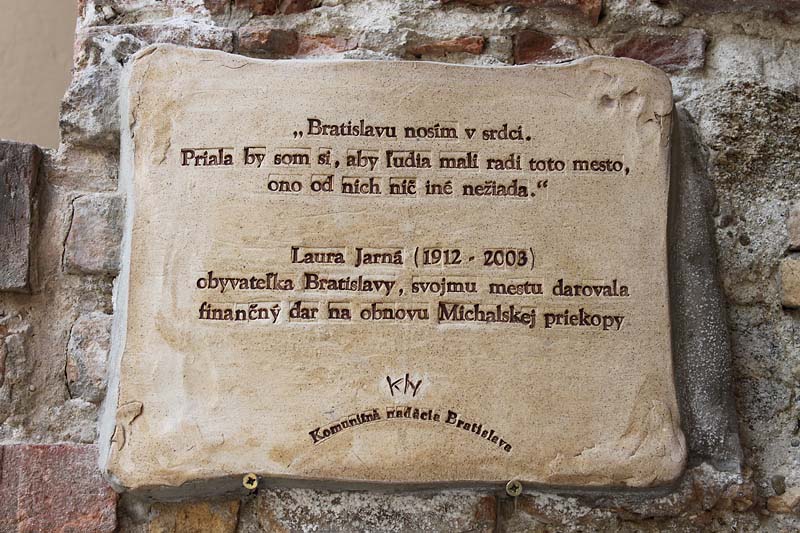 „Bratislavu nosím v srdci.
Priala by som si, aby ľudia mali radi toto mesto,
ono od nich nič iné nežiada.“
Laura Jarná (1912 - 2003)
obyvateľka Bratislavy, svojmu mestu darovala
finančný dar na obnovu Michalskej priekopy
Komunitná nadácia Bratislava